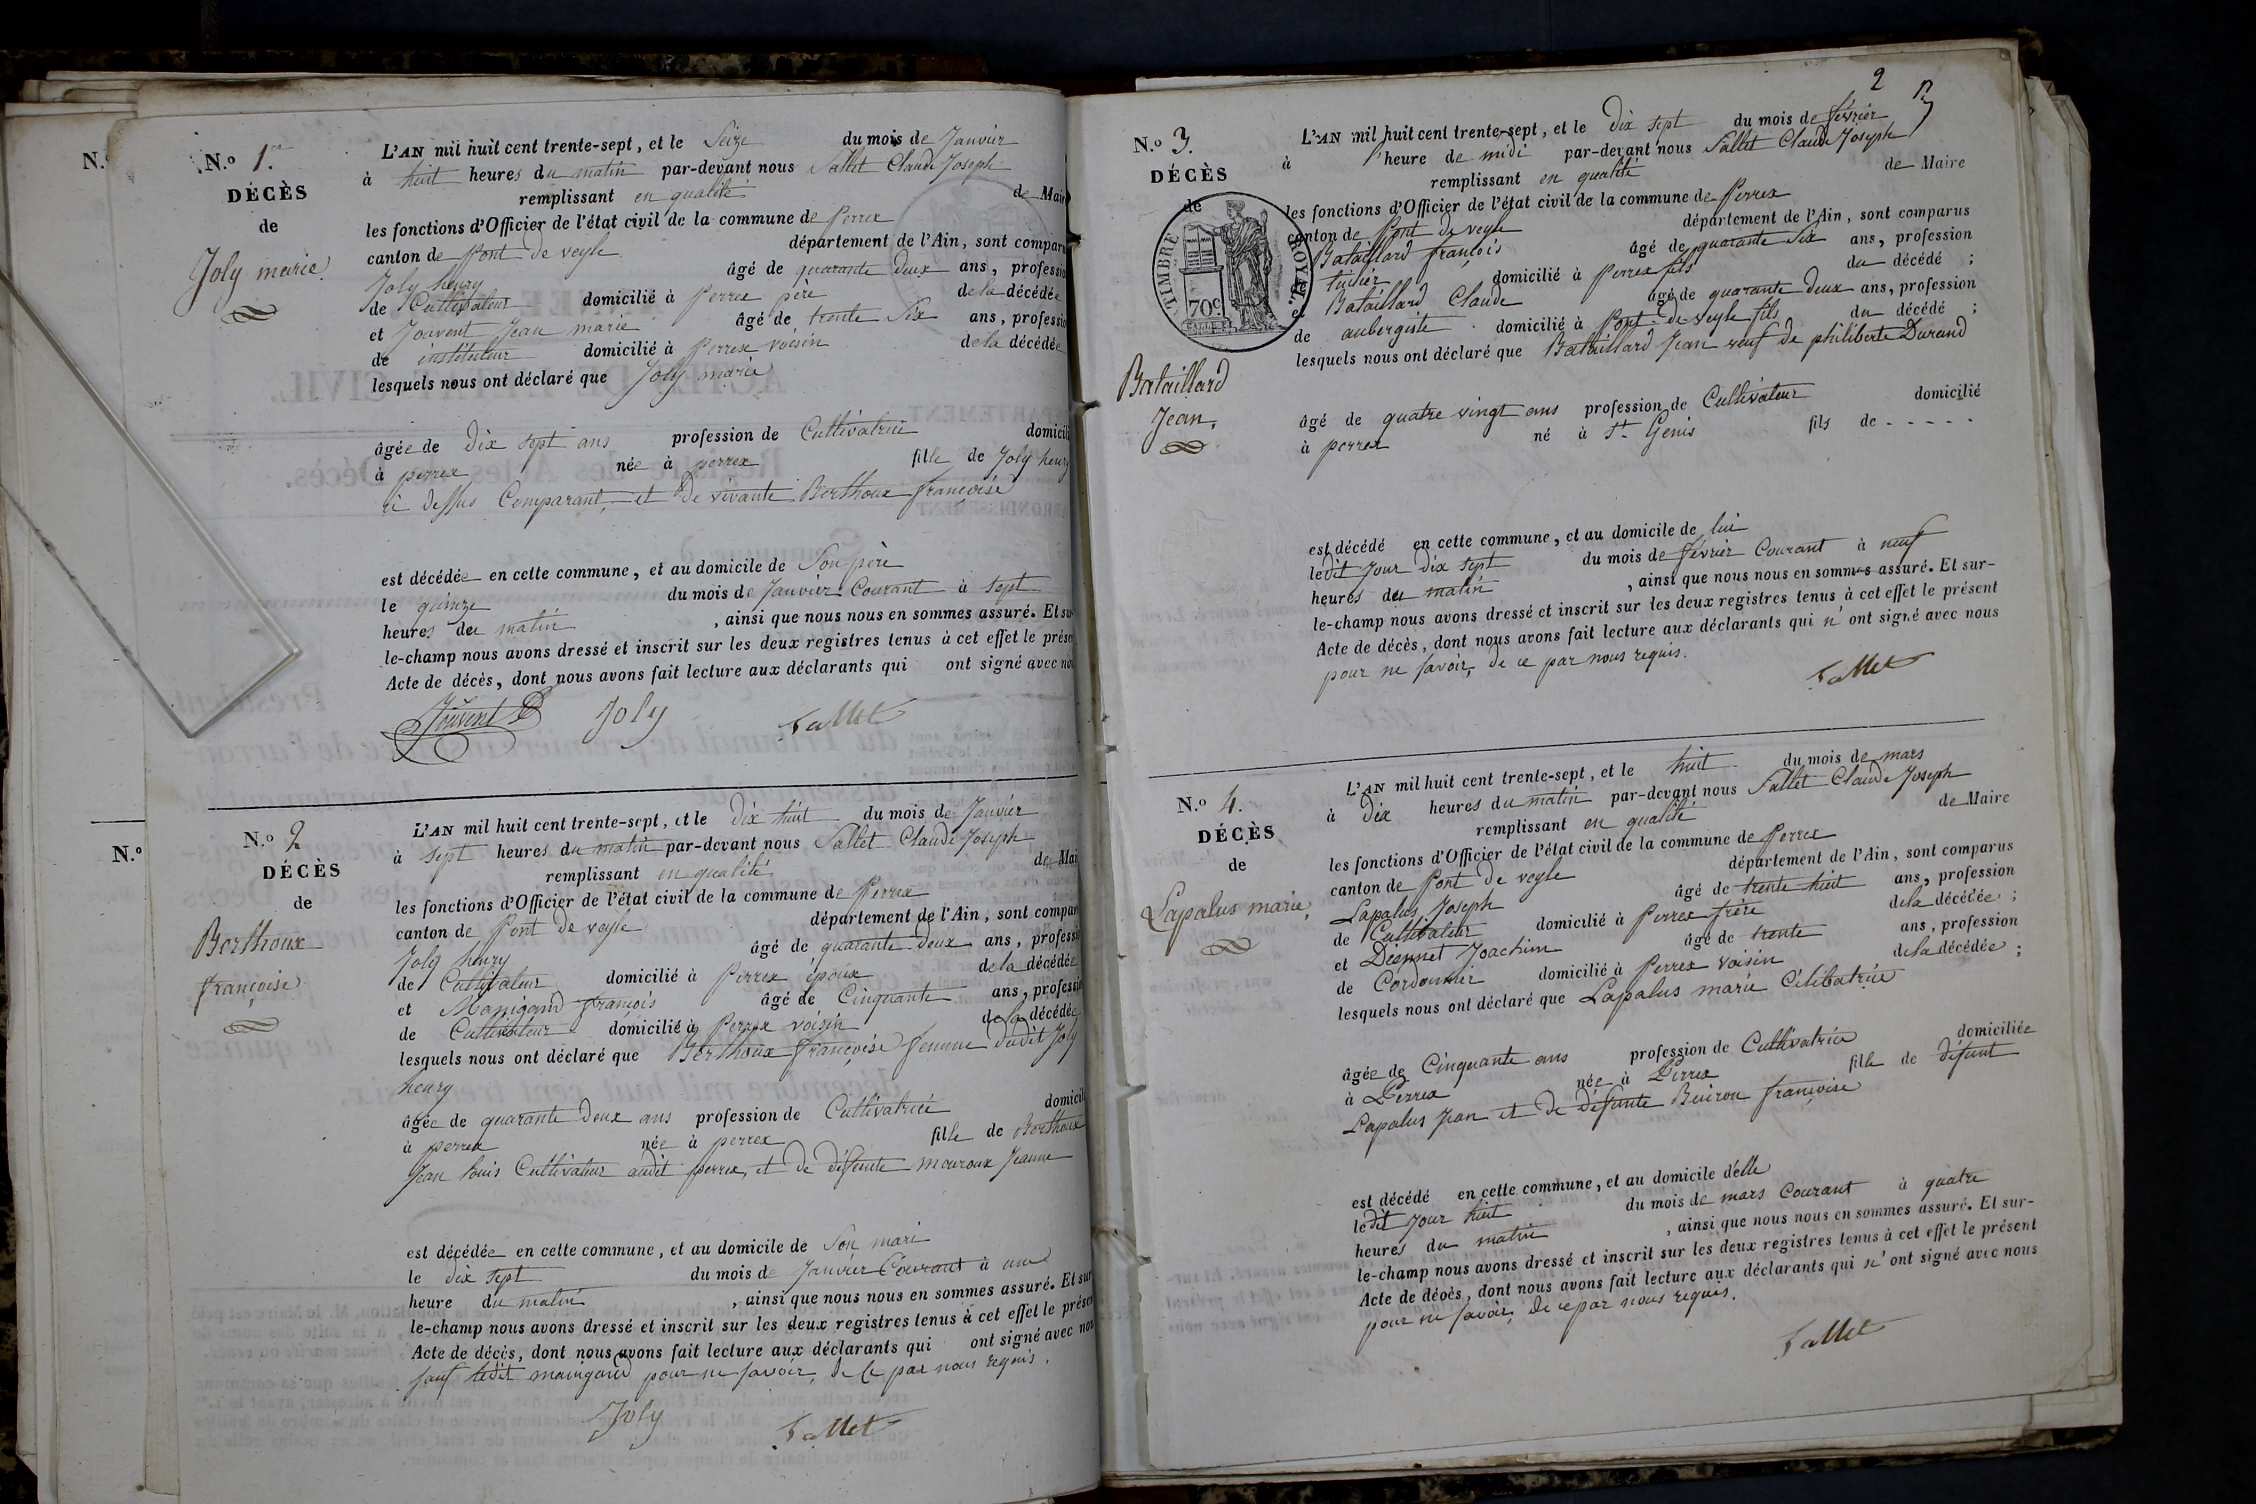 N.º
N.º
N.º 1.er
DÉCÈS
de
Joly marie
L'AN mil huit cent trente-sept, et le Seize du mois de Janvier
à huit heures du matin par-devant nous Sallet Claude Joseph
remplissant en qualité de Mair
les fonctions d'Officier de l'état civil de la commune de Perrex
canton de Pont de veyle département de l'Ain, sont compar
Joly henry âgé de quarante deux ans, professi
de Cultivateur domicilié à Perrex père de la décédée
et Jouvent Jean marie âgé de trente Six ans, professi
de instituteur domicilié à Perrex voisin de la décédée
lesquels nous ont déclaré que Joly marie
âgée de dix sept ans profession de Cultivatrice domicili
à perrex née à perrex fille de Joly henry
ci dessus Comparant, et de vivante Berthoux françoise
est décédée en cette commune, et au domicile de Son père
le quinze du mois de Janvier Courant à sept
heures du matin, ainsi que nous nous en sommes assuré. Et su
le-champ nous avons dressé et inscrit sur les deux registres tenus à cet effet le prése
Acte de décès, dont nous avons fait lecture aux déclarants qui ont signé avec nou
Jouvent Joly Sallet
N.º 2
DÉCÈS
de
Berthoux
françoise
L'AN mil huit cent trente-sept, et le dix huit du mois de Janvier
à sept heures du matin par-devant nous Sallet Claude Joseph
remplissant en qualité de Mai
les fonctions d'Officier de l'état civil de la commune de Perrex
canton de Pont de veyle département de l'Ain, sont compar
Joly henry âgé de quarante deux ans, professi
de Cultivateur domicilié à Perrex époux de la décédée
et Manigand françois âgé de Cinquante ans, professi
de Cultivateur domicilié à Perrex voisin de la décédée
lesquels nous ont déclaré que Berthoux françoise femme dudit Joly
henry
âgée de quarante deux ans profession de Cultivatrice domicili
à perrex née à perrex fille de Berthoux
Jean louis Cultivateur audit perrex, et de défunte mouroux Jeanne
est décédée en cette commune, et au domicile de Son mari
le dix sept du mois de Janvier Courant à une
heure du matin, ainsi que nous nous en sommes assuré. Et sur
le-champ nous avons dressé et inscrit sur les deux registres tenus à cet effet le présen
Acte de décès, dont nous avons fait lecture aux déclarants qui ont signé avec nou
sauf ledit manigand pour ne savoir, de ce par nous requis.
Joly Sallet
2
N.º 3.
DÉCÈS
de
TIMBRE ROYAL.
70c
Bataillard
Jean,
L'AN mil huit cent trente-sept, et le dix sept du mois de février
à l'heure de midi par-devant nous Sallet Claude Joseph
remplissant en qualité de Maire
les fonctions d'Officier de l'état civil de la commune de Perrex
canton de Pont de veyle département de l'Ain, sont comparus
Bataillard françois âgé de quarante Six ans, profession
tuilier domicilié à Perrex fils du décédé ;
et Bataillard Claude âgé de quarante deux ans, profession
de aubergiste domicilié à Pont de veyle fils du décédé ;
lesquels nous ont déclaré que Bataillard Jean veuf de philiberte Durand
âgé de quatre vingt ans profession de Cultivateur domicilié
à perrex né à St. Genis fils de - - - - -
est décédé en cette commune, et au domicile de lui
ledit Jour dix sept du mois de février Courant à neuf
heures du matin, ainsi que nous nous en sommes assuré. Et sur-
le-champ nous avons dressé et inscrit sur les deux registres tenus à cet effet le présent
Acte de décès, dont nous avons fait lecture aux déclarants qui n'ont signé avec nous
pour ne savoir, de ce par nous requis.
Sallet
N.º 4.
DÉCÈS
de
Lapalus marie,
L'AN mil huit cent trente-sept, et le huit du mois de mars
à Dix heures du matin par-devant nous Sallet Claude Joseph
remplissant en qualité de Maire
les fonctions d'Officier de l'état civil de la commune de Perrex
canton de Pont de veyle département de l'Ain, sont comparus
Lapalus Joseph âgé de trente huit ans, profession
de Cultivateur domicilié à Perrex frère de la décédée ;
et Diennet Joachim âgé de trente ans, profession
de Cordonnier domicilié à Perrex voisin de la décédée ;
lesquels nous ont déclaré que Lapalus marie Célibatrice
âgée de Cinquante ans profession de Cultivatrice domiciliée
à Perrex née à Perrex fille de défunt
Lapalus Jean et de défunte Buiron françoise
est décédé en cette commune, et au domicile d'elle
ledit Jour huit du mois de mars Courant à quatre
heures du matin, ainsi que nous nous en sommes assuré. Et sur-
le-champ nous avons dressé et inscrit sur les deux registres tenus à cet effet le présent
Acte de décès, dont nous avons fait lecture aux déclarants qui n'ont signé avec nous
pour ne savoir, de ce par nous requis.
Sallet